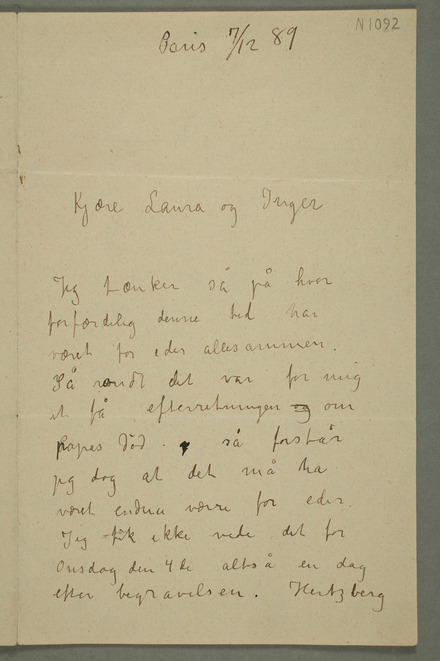 N1092
Paris 7/12 89
Kjære Laura og Inger
Jeg tænker så på hvor
forfærdelig denne tid har
været for eder allesammen.
Så rondt det var for mig
at få efterretningen og om
papas død. så forstår
jeg dog at det må ha
været endnu værre for eder
Jeg fik ikke vide det før
Onsdag den 4de altså en dag
efter begravelsen. Hertzberg